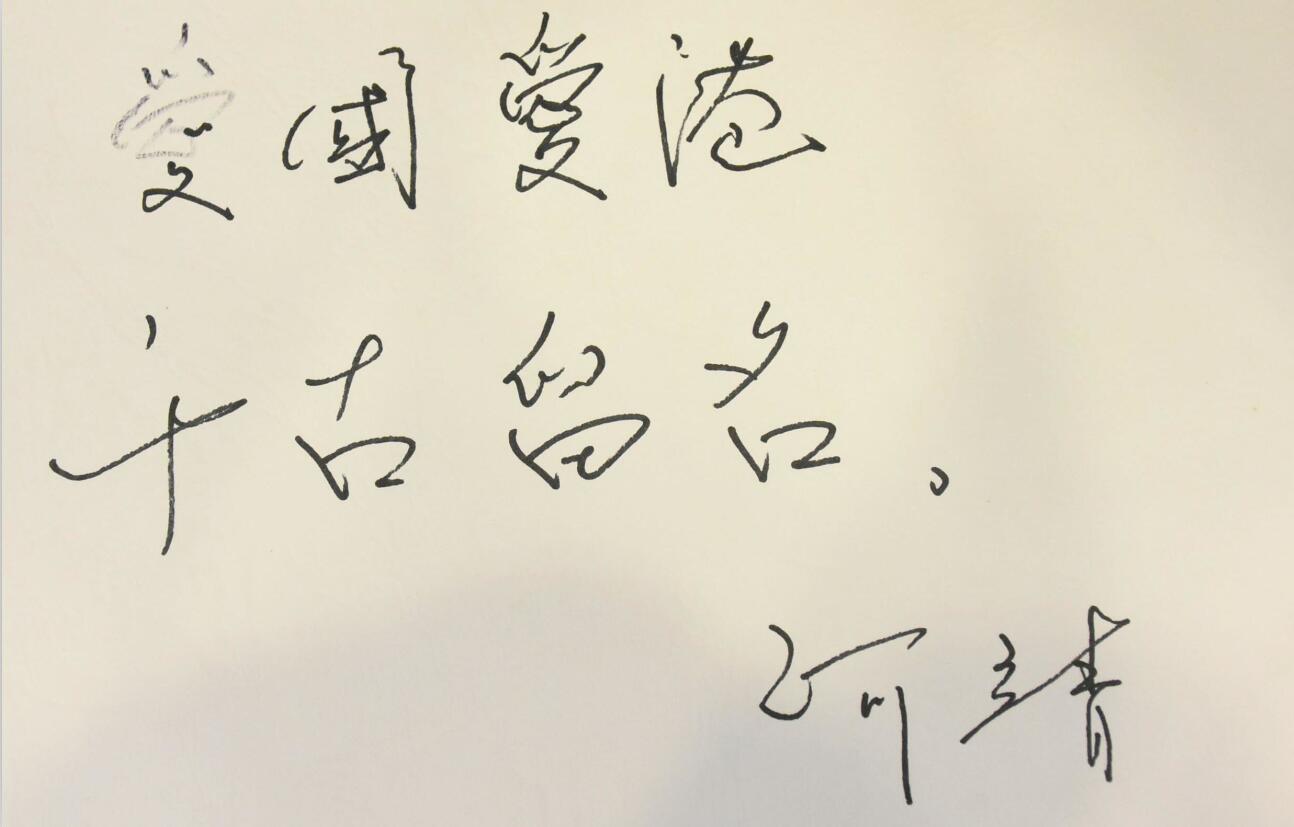 愛國愛港
千古留名。
阿靖